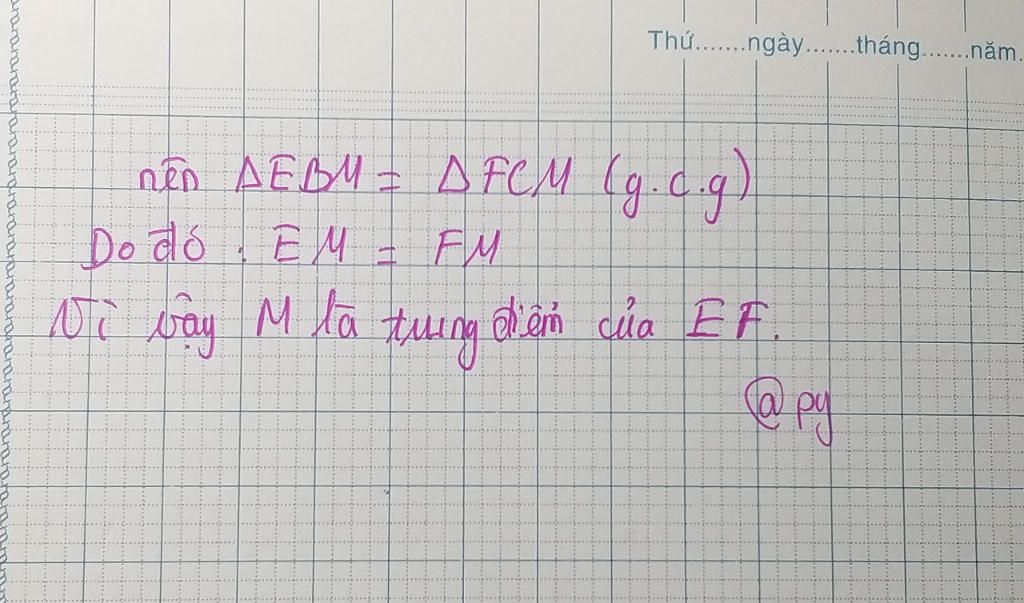 Thứ.......ngày.......tháng.......năm.
nên ΔEBM = ΔFCM (g.c.g)
Do đó : EM = FM
Vì vậy M là trung điểm của EF.
@py